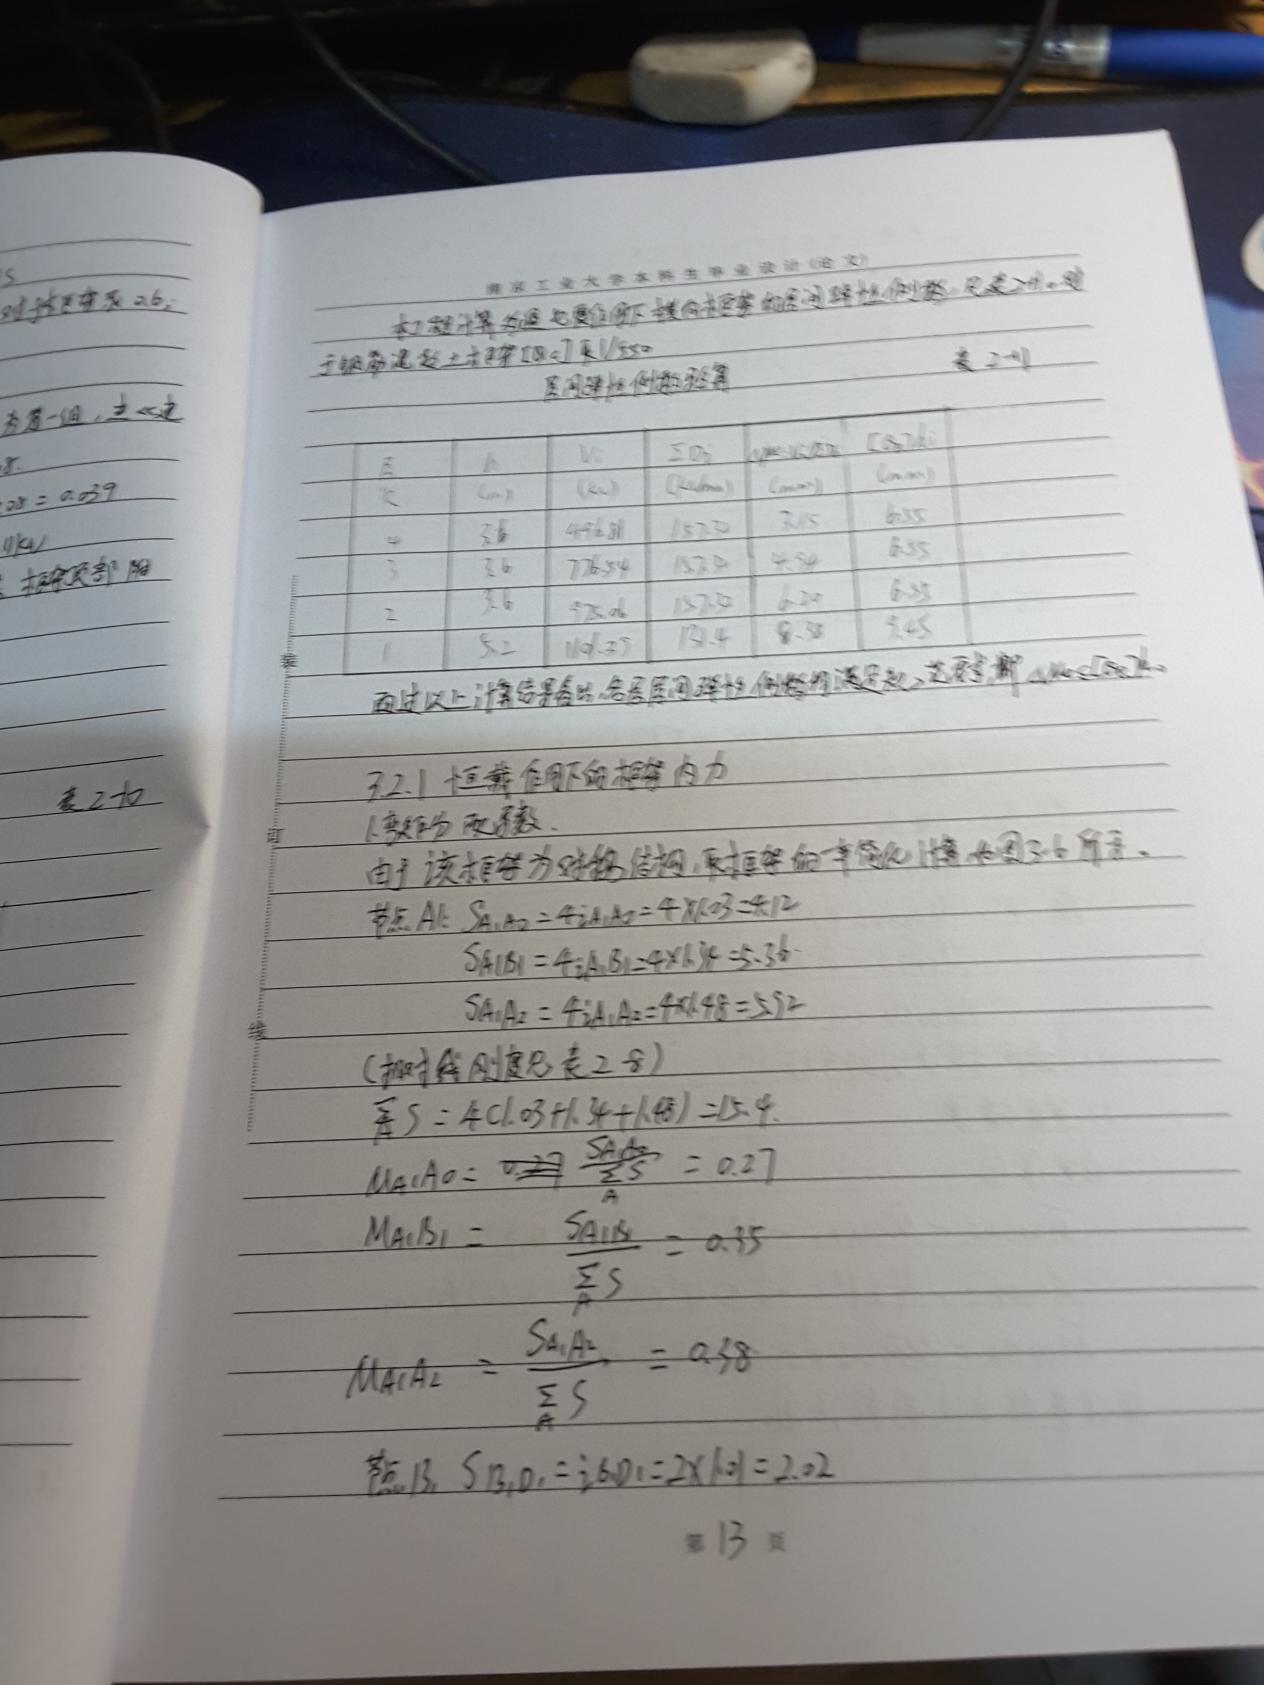 S
0.6;
为第一组,
8.
08=0.039
kN
框架顶部附
表2-10
南京工业大学本科生毕业设计(论文)
本工程计算多遇地震作用下横向框架的层间弹性侧移,见表2-11。对
于钢筋混凝土框架[θe]取1/550
层间弹性侧移验算 表2-11
层 h Vi ΣDi [θe]hi
次 (m) (kN) (kN/mm) (mm) (mm)
4 3.6 496.81 157.72 3.15 6.55
3 3.6 776.54 157.72 4.54 6.55
2 3.6 975.06 157.72 6.20 6.55
1 5.2 1101.35 131.4 8.38 9.45
通过以上计算结果看出,各层层间弹性侧移均满足规范要求,即 Δue≤[θe]h。
3.2.1 恒载作用下的框架内力
1.弯矩分配系数.
由于该框架为对称结构,取框架的一半简化计算,如图3.6所示。
节点A1: SA1A0=4iA1A0=4×1.03=4.12
SA1B1=4iA1B1=4×1.34=5.36
SA1A2=4iA1A2=4×1.48=5.92
(相对线刚度见表2-8)
ΣA S=4(1.03+1.34+1.48)=15.4.
MA1A0= SA1A0/ΣA S =0.27
MA1B1= SA1B1/ΣA S =0.35
MA1A2= SA1A2/ΣA S =0.38
节点B1 SB1D1=iB1D1=2×1.01=2.02
第 13 页
装
订
线